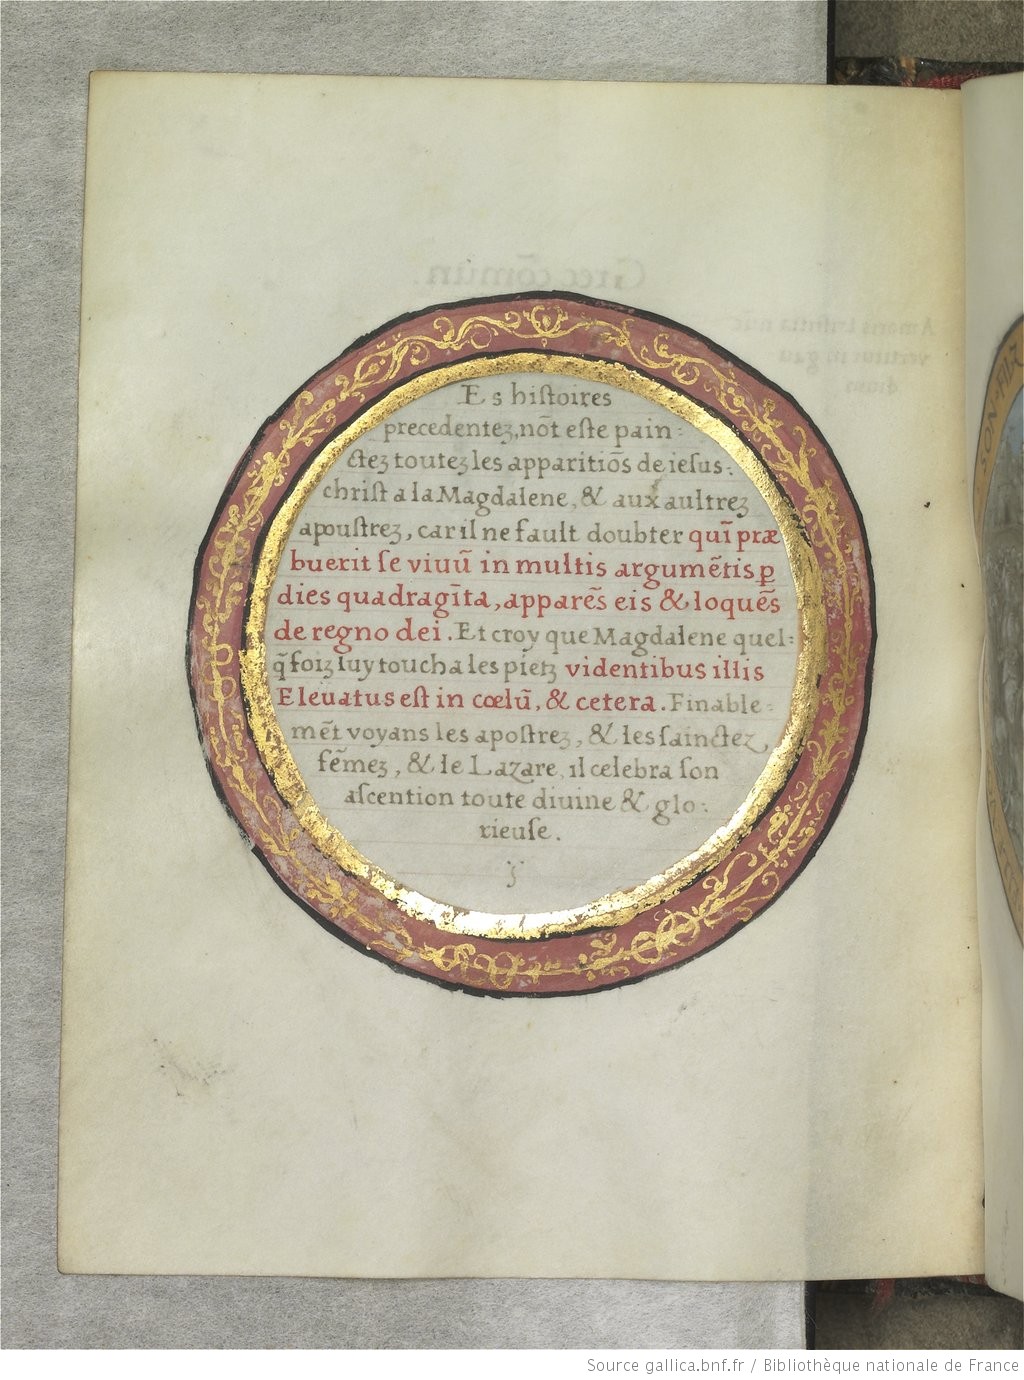 Es histoires
precedentez, nõt este pain:
ctez toutez les apparitiõs de iesus:
christ a la Magdalene, & aux aultrez
apoustrez, car il ne fault doubter quĩ præ
buerit se viuũ in multis argumẽtis ꝑ
dies quadragĩta, apparẽs eis & loquẽs
de regno dei. Et croy que Magdalene quel:
q̃foiz luy toucha les pietz videntibus illis
Eleuatus est in cœlũ, & cetera. Finable:
mẽt voyans les apostrez, & les sainctez
fẽmez, & le Lazare, il celebra son
ascention toute diuine & glo:
rieuse.
Grec cõmũn.
SON·FILZ
Source gallica.bnf.fr / Bibliothèque nationale de France